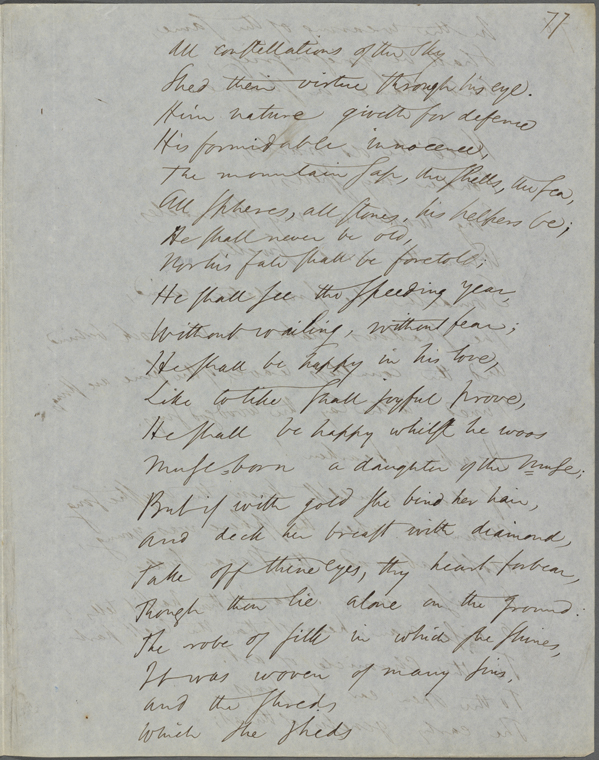 77
All constellations of the sky
Shed their virtue through his eye.
Him nature giveth for defence
His formidable innocence,
The mountain sap, the shells, the sea,
All spheres, all stones, his helpers be;
He shall never be old,
Nor his fate shall be foretold;
He shall see the speeding year,
Without wailing, without fear;
He shall be happy in his love,
Like to like shall joyful prove,
He shall be happy whilst he woos
Muse-born a daughter of the Muse;
But if with gold she bind her hair,
And deck her breast with diamond,
Take off thine eyes, thy heart forbear,
Though thou lie alone on the ground:
The robe of silk in which she shines,
It was woven of many sins,
And the shreds
Which she sheds